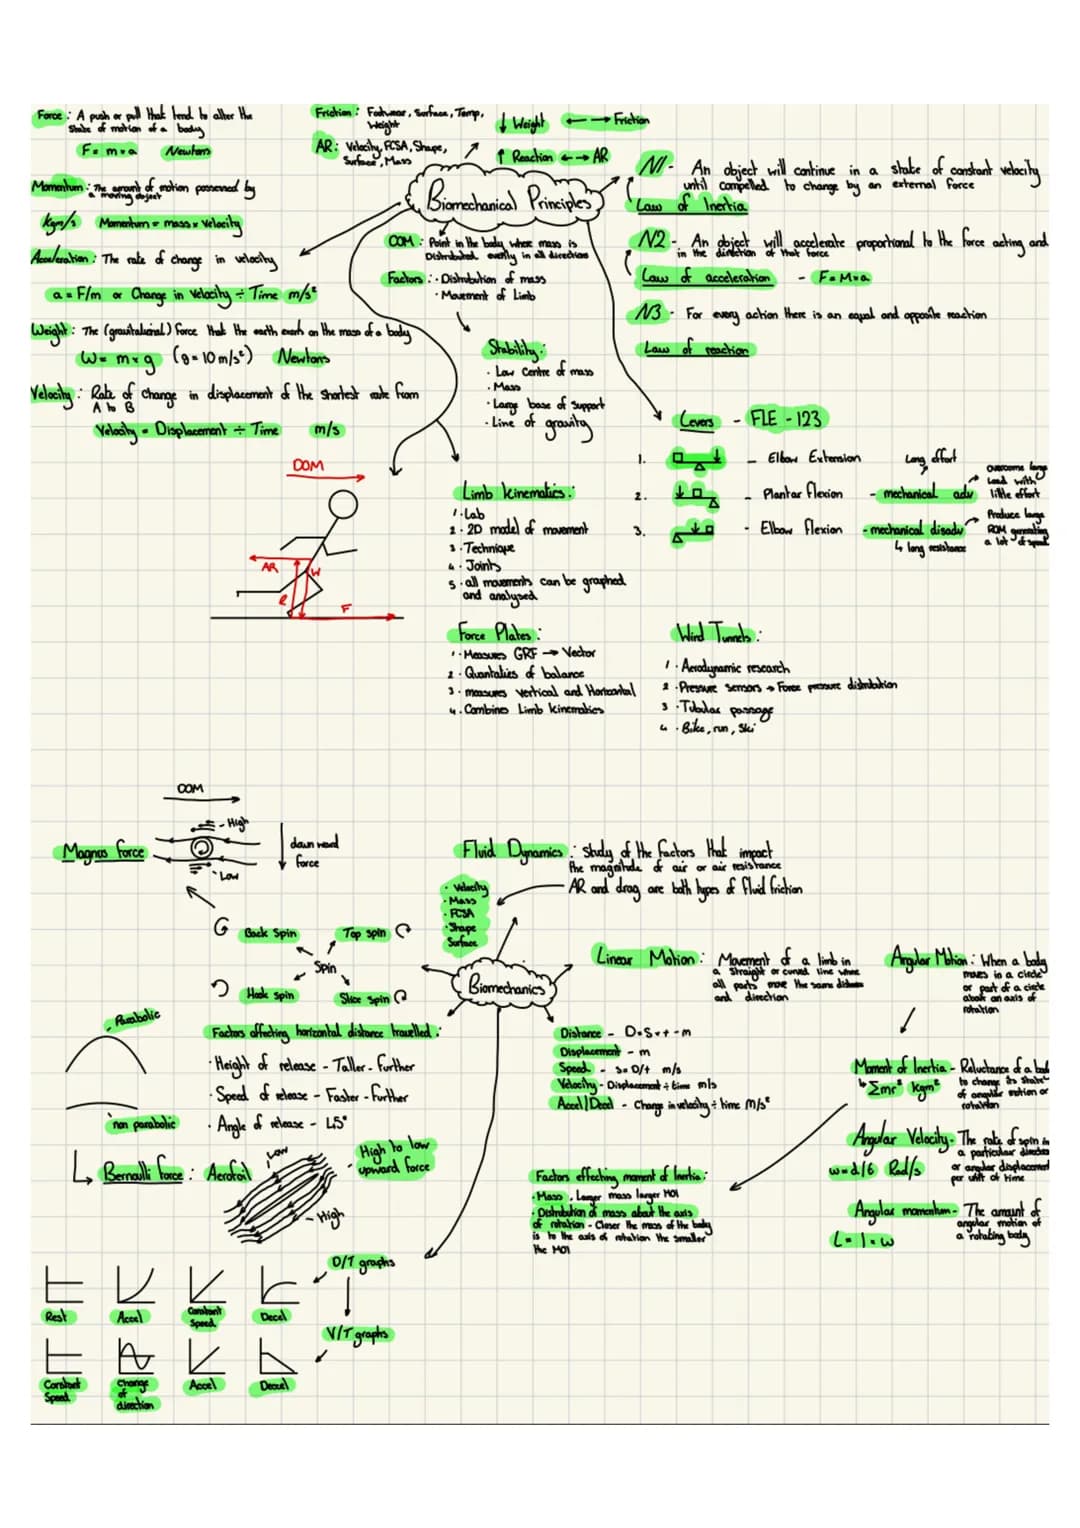 Force : A push or pull that tend to alter the
State of motion of a body
F = m × a Newtons
Momentum : The amount of motion possessed by
a moving object
Kgm/s Momentum = mass × Velocity
Acceleration : The rate of change in velocity
a = F/m or Change in Velocity ÷ Time m/s²
Weight : The (gravitational) force that the earth exerts on the mass of a body
W = m × g (g = 10 m/s²) Newtons
Velocity : Rate of Change in displacement of the shortest route from
A to B
Velocity = Displacement ÷ Time m/s
Friction : Footwear, Surface, Temp,
Weight
AR : Velocity, FCSA, Shape,
Surface, Mass
↓ Weight ←→ Friction
↑ Reaction ←→ AR
Biomechanical Principles
COM : Point in the body where mass is
Distributed evenly in all direction
Factors : · Distribution of mass
· Movement of Limb
Stability :
· Low Centre of mass
· Mass
· Large base of Support
· Line of gravity
N1 - An object will continue in a state of constant velocity
until compelled to change by an external force
Law of Inertia
N2 - An object will accelerate proportional to the force acting and
in the direction of that force
Law of acceleration - F = M × a
N3 - For every action there is an equal and opposite reaction
Law of reaction
Levers - FLE - 123
1. - Elbow Extension
Long effort
2. - Plantar flexion - mechanical adv
Overcome large
Load with
little effort
3. - Elbow Flexion - mechanical disadv
↳ long resistance
Produce large
ROM generating
a lot of speed
DOM
AR
W
R
F
Limb kinematics :
1 · Lab
2 · 2D model of movement
3 · Technique
4 · Joints
5 · all movements can be graphed
and analysed
Force Plates :
1 · Measures GRF → Vector
2 · Quantaties of balance
3 · measures vertical and Horizontal
4 · Combines Limb kinematics
Wind Tunnels :
1 · Aerodynamic research
2 · Pressure Sensors → Force pressure distribution
3 · Tubular passage
4 · Bike, run, Ski
DOM
Magnus force
- High
- Low
down ward
force
Back Spin
Top spin
Spin
Hook spin
Slice spin
Fluid Dynamics : Study of the factors that impact
the magnitude of air or air resistance
AR and drag are both types of fluid friction
· Velocity
· Mass
· FCSA
· Shape
Surface
Biomechanics
Linear Motion : Movement of a limb in
a straight or curved line where
all parts move the same distance
and direction
Angular Motion : When a body
moves in a circle
or part of a circle
about an axis of
rotation
- Parabolic
non parabolic
Factors affecting horizontal distance travelled :
· Height of release - Taller - further
· Speed of release - Faster - Further
· Angle of release - 45°
↳ Bernoulli force : Aerofoil
Low
- High
- High to low
upward force
Distance - D = S × t - m
Displacement - m
Speed - S = D/t m/s
Velocity - Displacement ÷ time m/s
Accel/Decel - Change in velocity ÷ time m/s²
Moment of Inertia - Reluctance of a bod
to change its state
of angular motion or
rotation
↳ Σmr² Kgm²
Angular Velocity - The rate of spin in
a particular direction
or angular displacement
per unit of time
ω = d/t Rad/s
Angular momentum - The amount of
angular motion of
a rotating body
L = I × ω
Factors effecting moment of Inertia :
· Mass, Larger mass larger MOI
· Distribution of mass about the axis
of rotation - Closer the mass of the body
is to the axis of rotation the smaller
the MOI
D/T graphs
Rest Accel Constant
Speed Decel
V/T graphs
Constant
Speed Change
of
direction Accel Decel